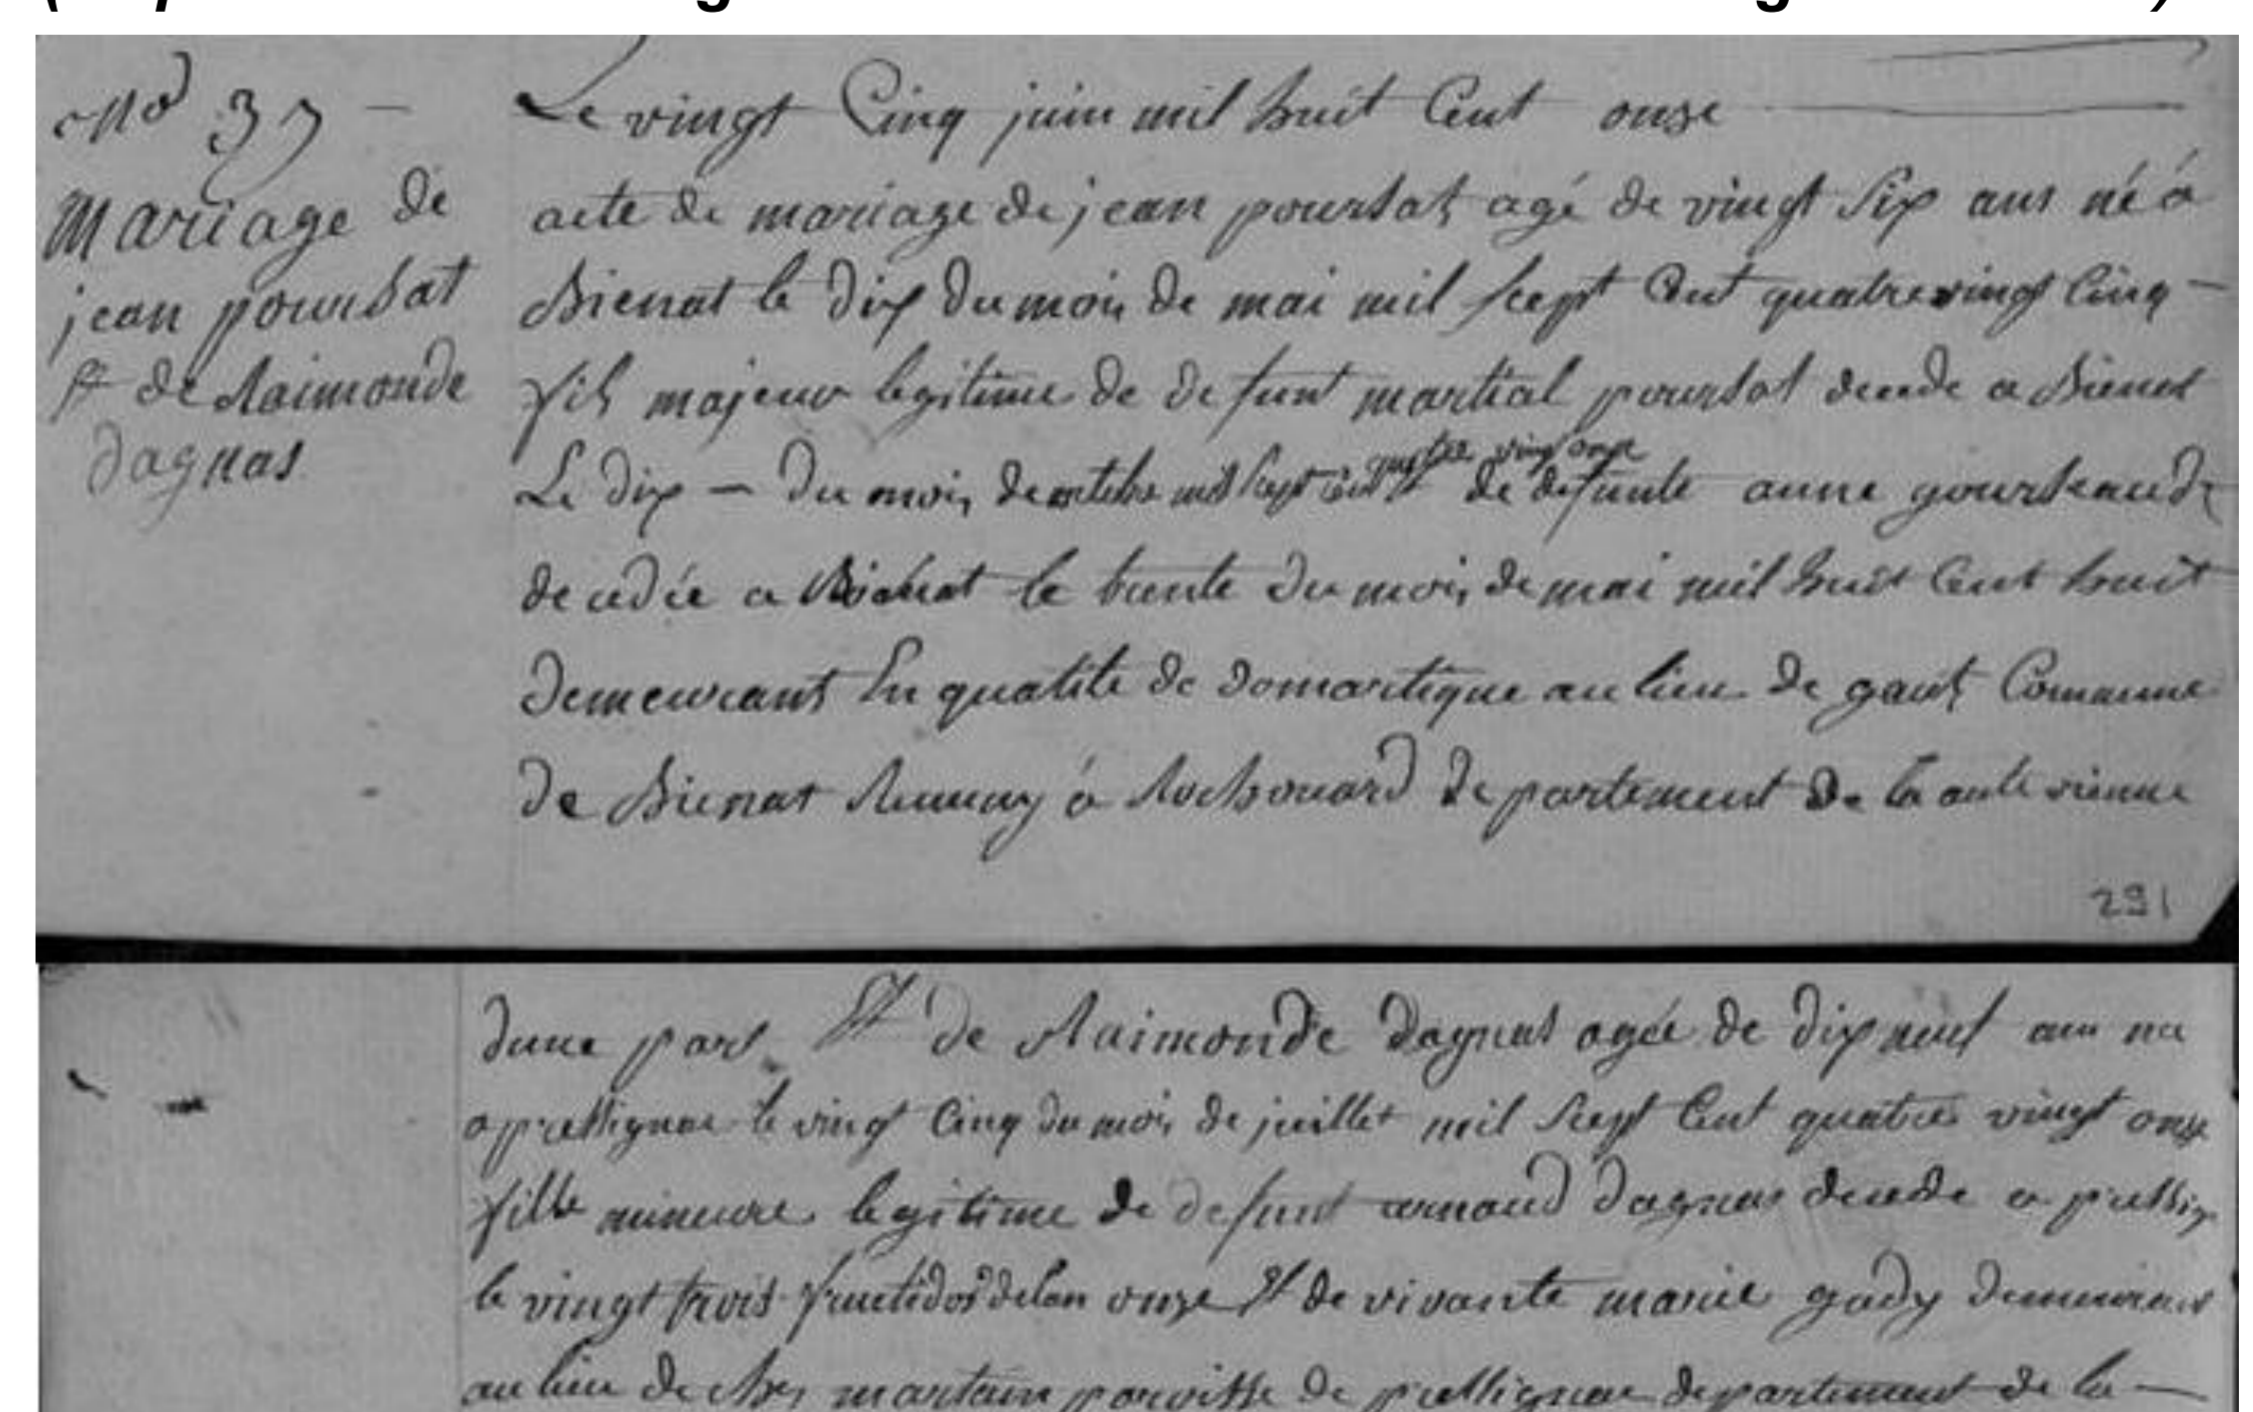 No 37 –
Mariage de
jean poursat
et de Raimonde
dagnas
Le vingt Cinq juin mil huit Cent onze
acte de mariage de jean poursat agé de vingt Six ans né à
Bienat le dix du mois de mai mil Sept Cent quatrevingt Cinq –
fils majeur legitime de defunt martial poursat decede a Bienat
quatre vingt onze
Le dix – du mois de octobre mil Sept cent de defunte anne gourseaud
decedée a Bienat le trente du mois de mai mil huit Cent huit
demeurant En qualite de domestique au lieu de gaut Comune
de Bienat à Rochouard departement de la aute vienne
291
dune part et de Raimonde dagnas agée de dix neuf ans né
a pressignac le vingt Cinq du mois de juillet mil Sept Cent quatre vingt onze
fille mineure legitime de defunt arnaud dagnas decede a pressig
le vingt trois fructidor de lan onze et de vivante marie gady demeurant
au lieu de chez martain paroisse de pressignac departement de la –